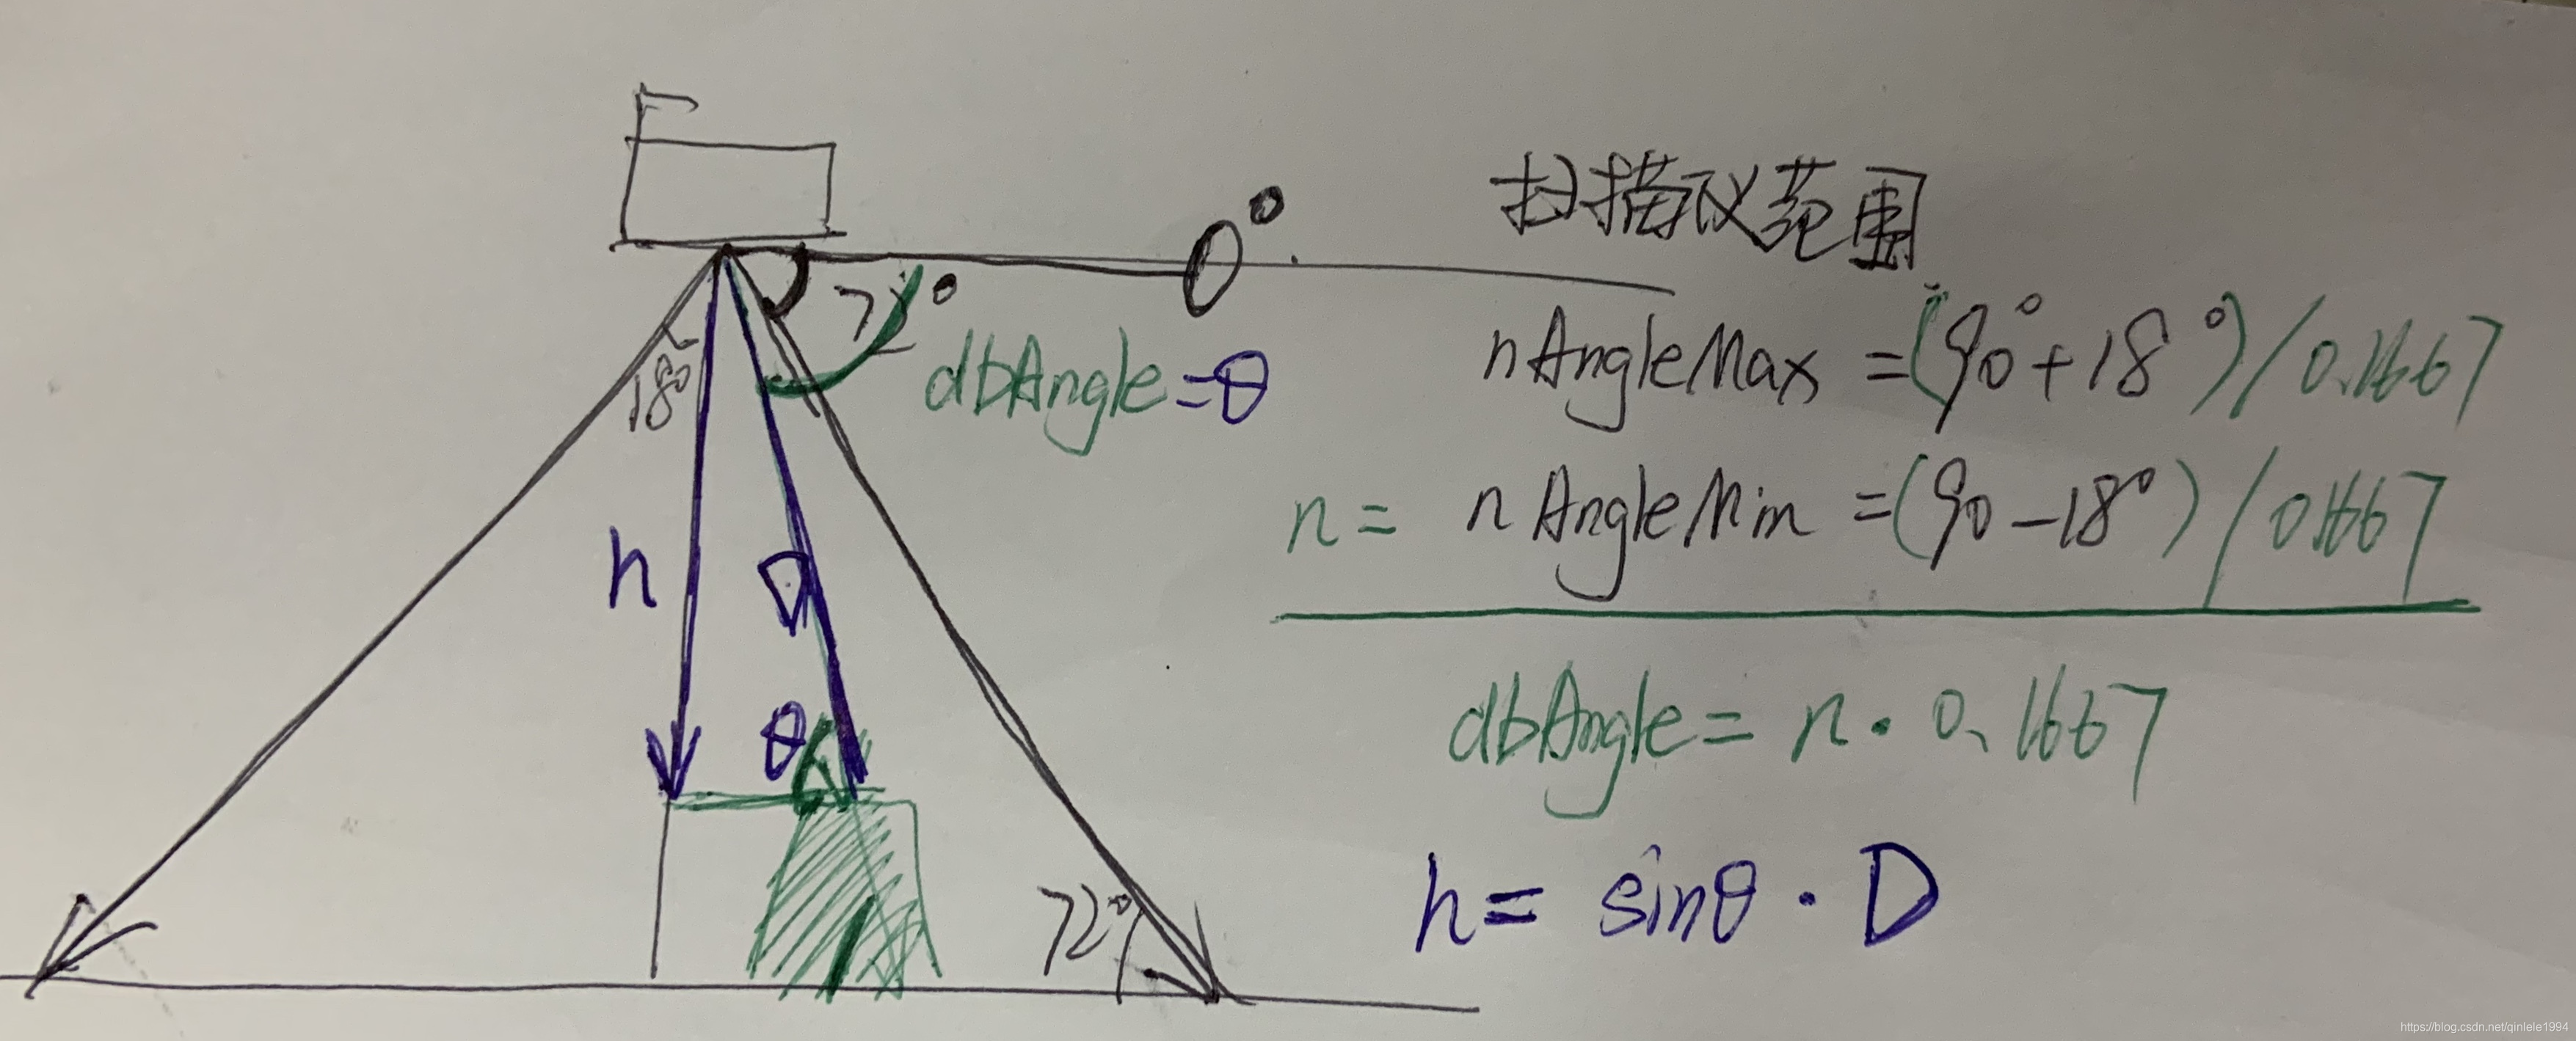 0°
扫描仪范围
72°
nAngleMax =(90°+18°)/0.1667
18°
dbAngle=θ
n= nAngleMin =(90-18°)/0.1667
h
D
θ
dbAngle= n·0.1667
72°
h= sinθ·D
https://blog.csdn.net/qinlele1994